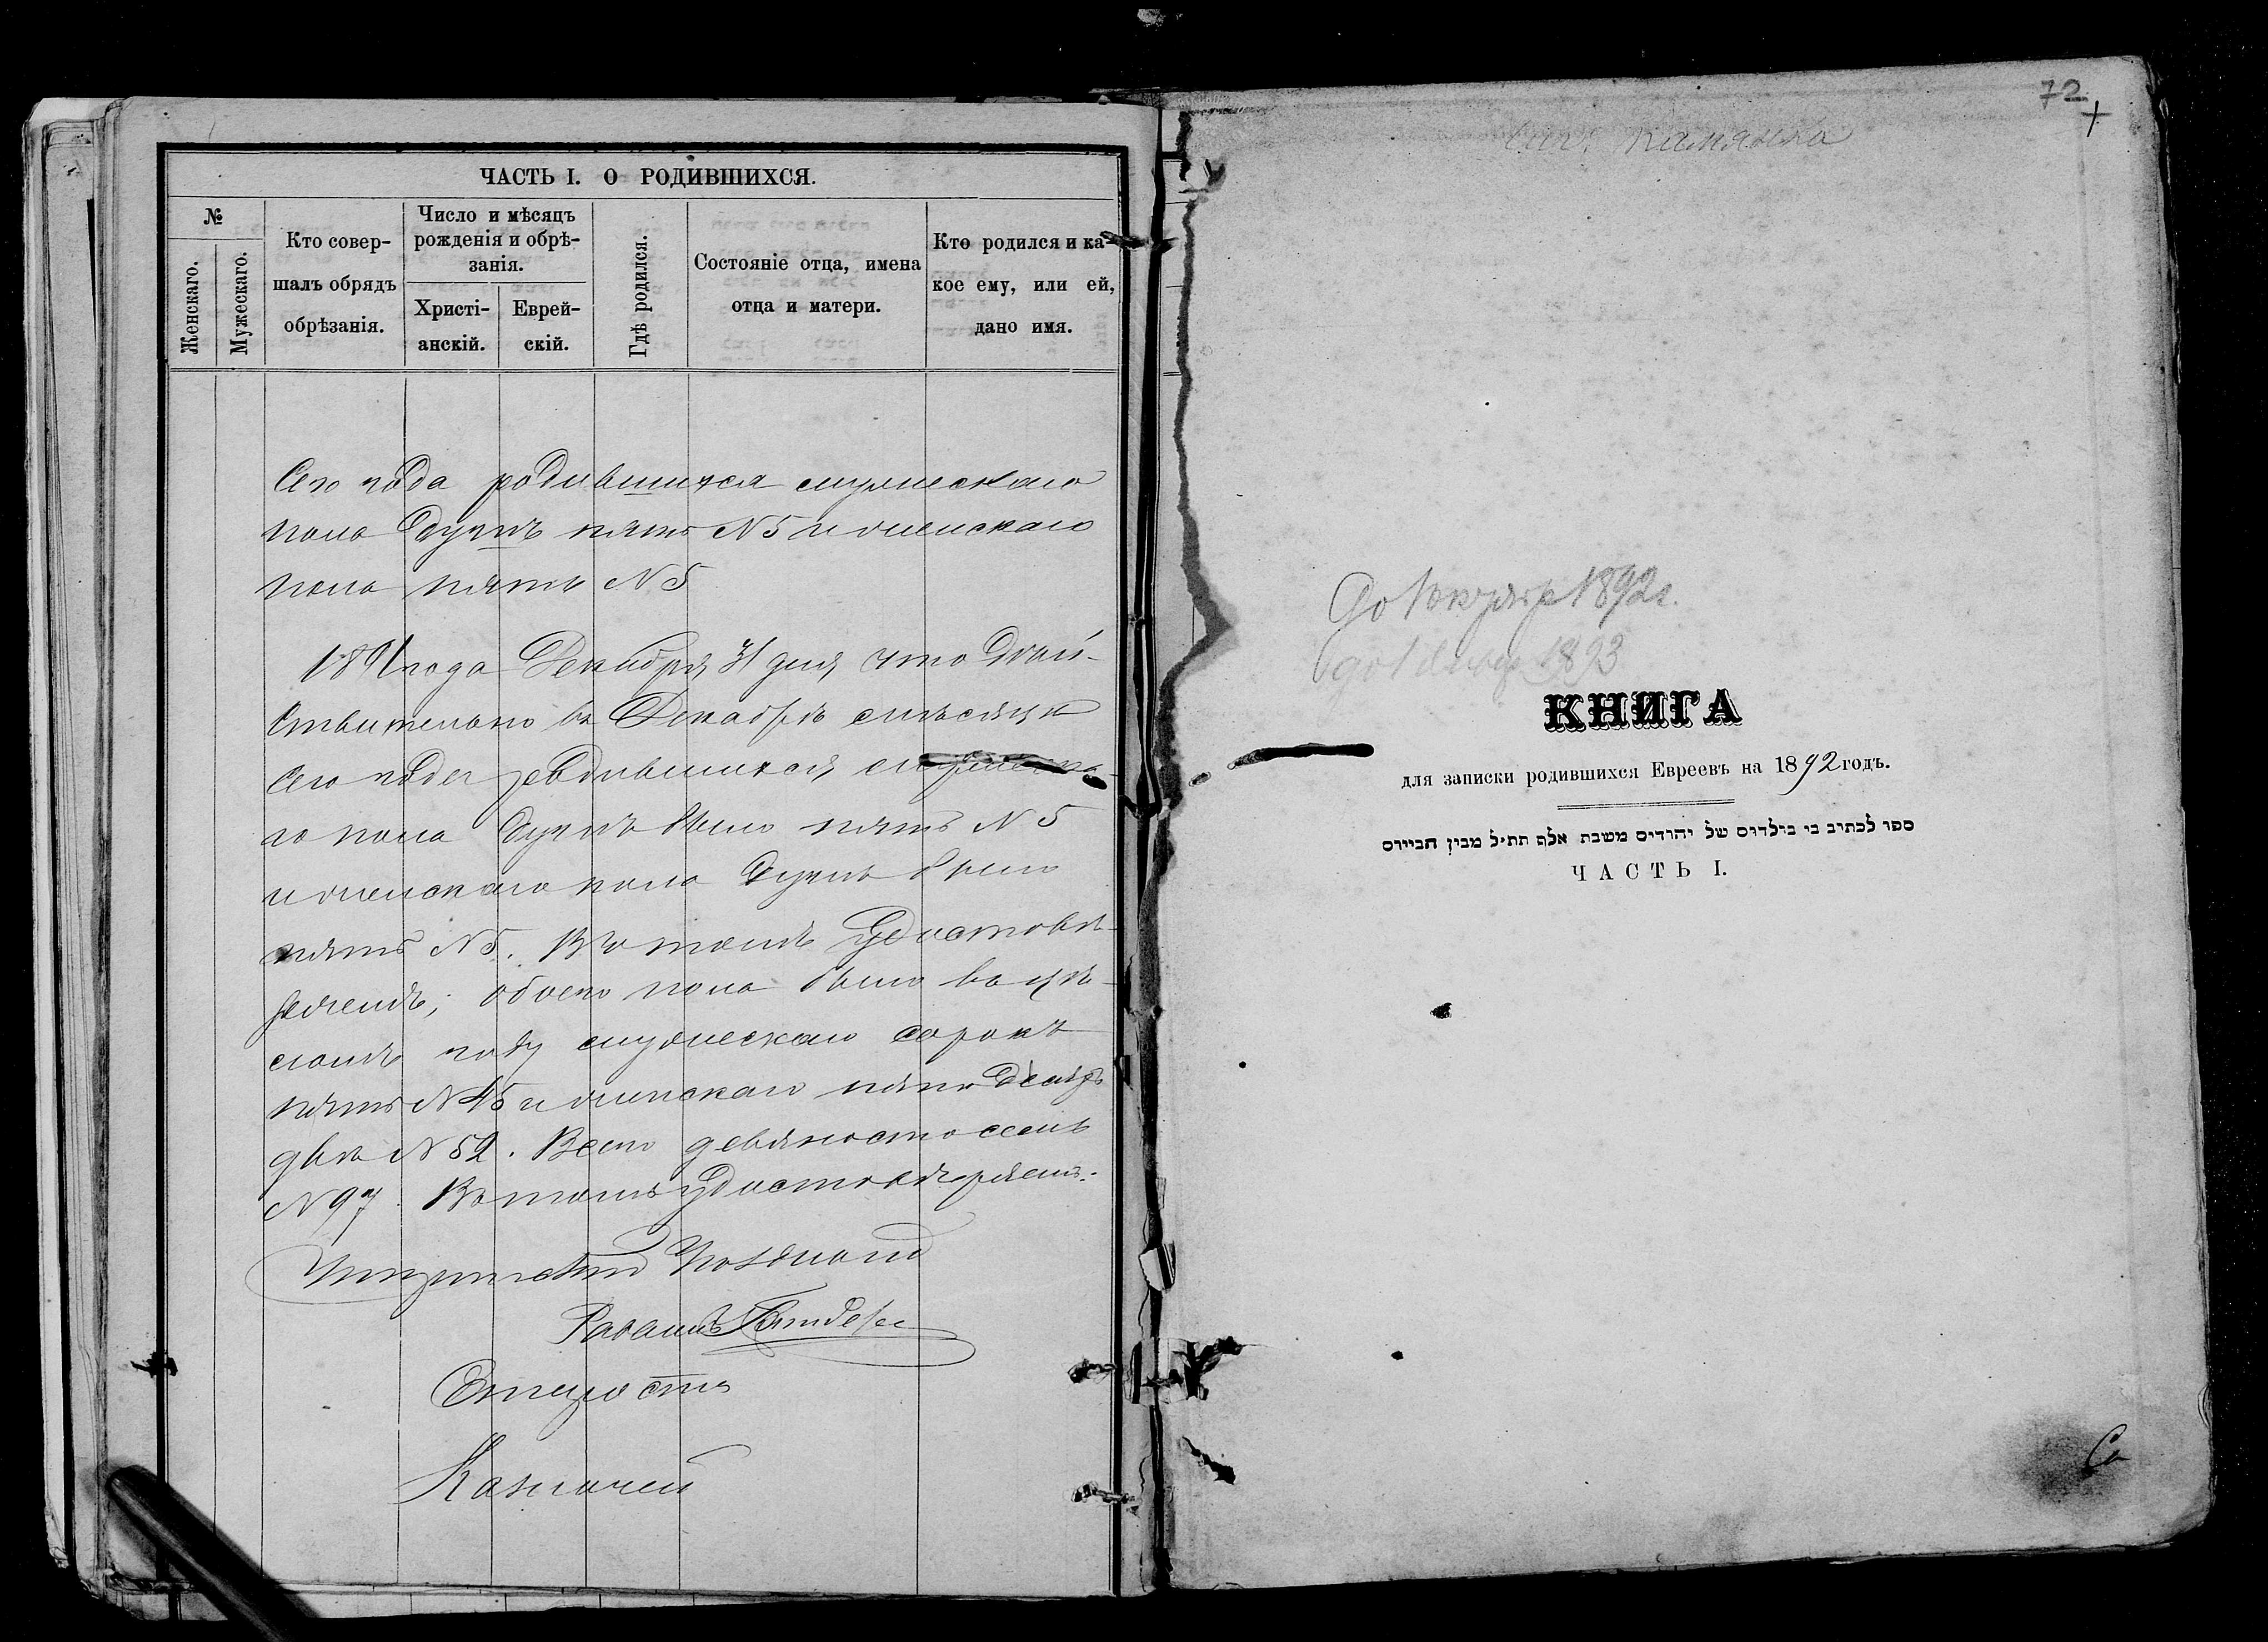 ЧАСТЬ I. О РОДИВШИХСЯ.
№
Женскаго.
Мужескаго.
Кто совер-
шалъ обрядъ
обрѣзанія.
Число и мѣсяцъ
рожденія и обрѣ-
занія.
Христі-
анскій.
Еврей-
скій.
Гдѣ родился.
Состояніе отца, имена
отца и матери.
Кто родился и ка-
кое ему, или ей,
дано имя.
Сего года родившихся мужескаго
пола душъ пять N5 и женскаго
пола пять N5
1891 года Декабря 31 дня, что дѣй-
ствительно въ Декабрѣ мѣсяцѣ
сего года родившихся мужеска-
го пола душъ было пять N 5
и женскаго пола душъ было
пять N5. Въ томъ удостовѣ-
ряемъ; обоего пола было въ цѣ-
ломъ году мужескаго сорокъ
пять N45 и женскаго пятьдесятъ
двѣ N 52. Всего девяносто семь
N 97. Въ томъ удостовѣряемъ:
Раввинъ
Староста
Казначей
72
1892г.
1893
КНИГА
для записки родившихся Евреевъ на 1892 годъ.
ספר לכתוב בו בולדים של יהודים משבת אלף תתיל מבין הביירס
ЧАСТЬ I.